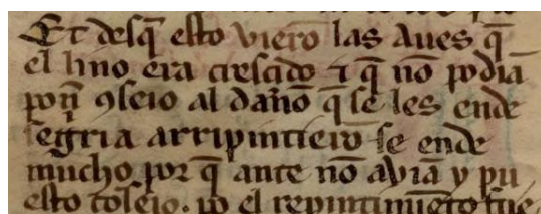 Et desq̃ esto vierõ las aues q̃
el lino era crescido ⁊ q̃ nõ podiã
pon̉ ꝯseio al dãno q̃ se les ende
segria arripintierõ se ende
mucho por q̃ ante nõ auiã y pu
esto cõseio. po el repintimiẽto fue